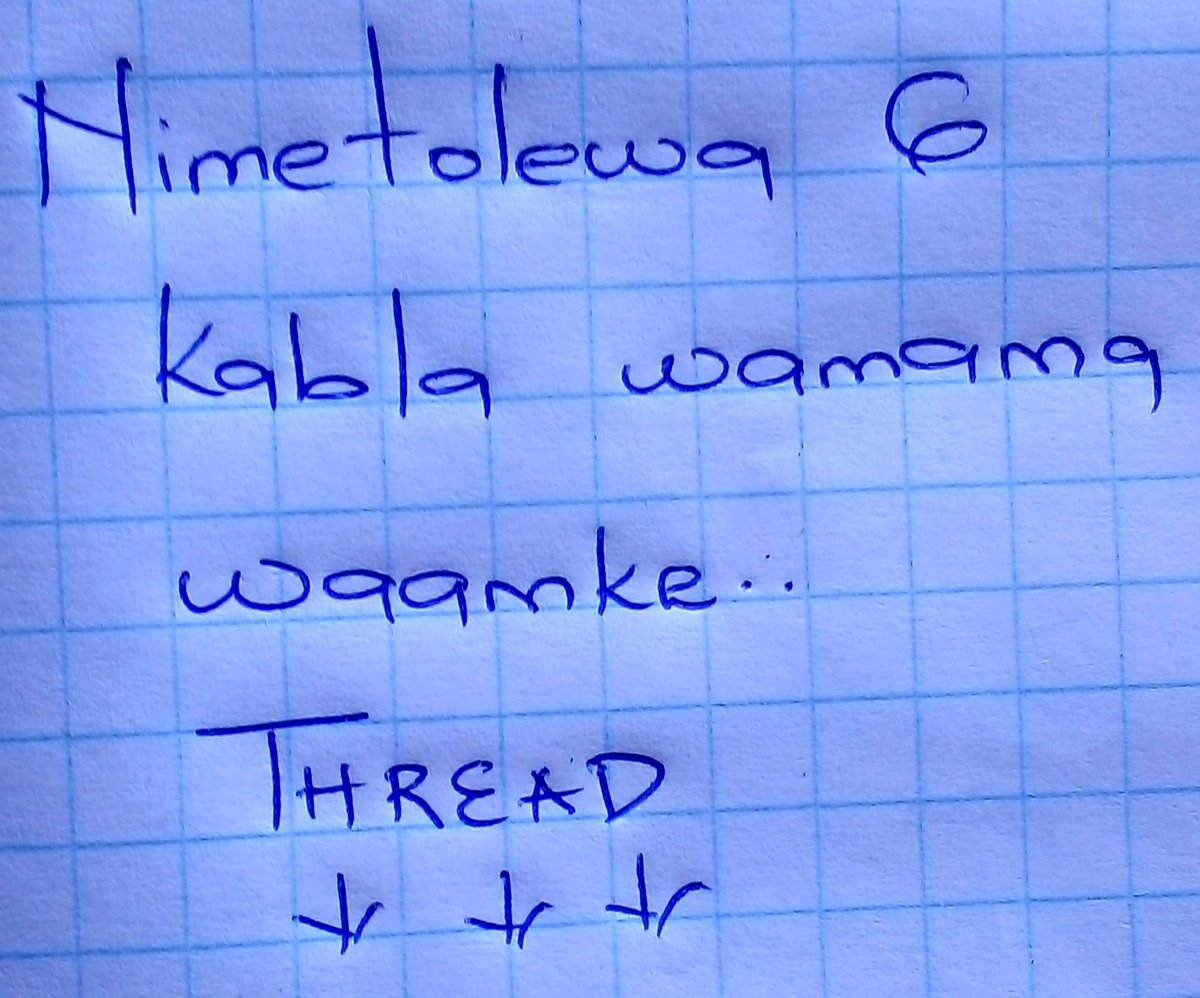 Nimetolewa 6
kabla wamama
waamke...
THREAD
↓ ↓ ↓